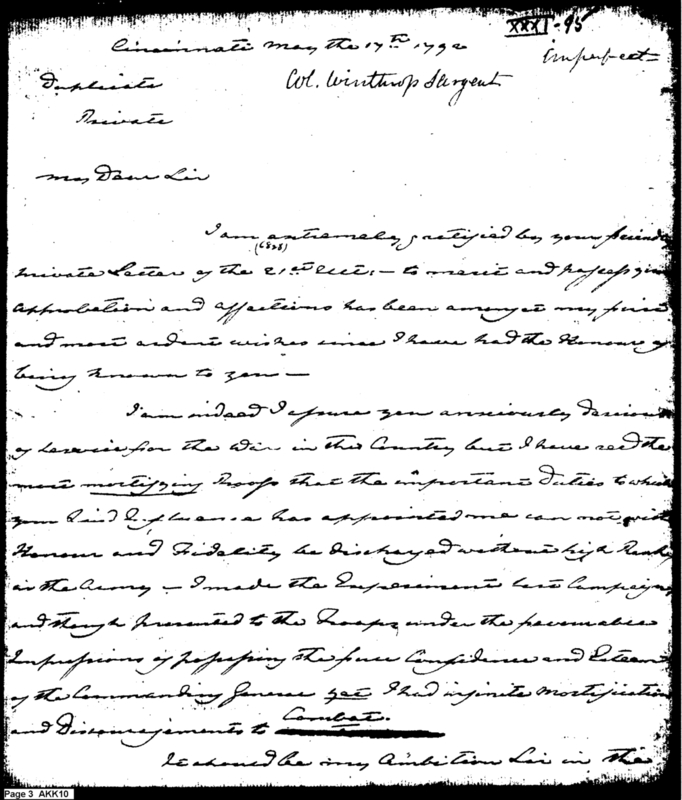 XXXI-95
Cincinnati May the 17th 1792
Imperfect
Duplicate
Col. Winthrop Sargent
Private
My Dear Sir
I am extremely gratified by your friendly
(6828)
Private Letter of the 21st Ult: — to merit and possess your
approbation and affections has been amongst my first
and most ardent wishes since I have had the Honour of
being known to you —
I am indeed I assure you anxiously desirous
of service for the War in this Country but I have had the
most mortifying Proofs that the important Duties to which
your kind Influence has appointed me can not with
Honour and Fidelity be discharged without high Rank
in the Army — I made the Experiment last Campaign
and though Presented to the Troops under the favourable
Impressions of possessing the full Confidence and Esteem
of the Commanding General yet I had infinite Mortification
and Discouragements to Combat.
It should be my Ambition Sir in the
Page 3 AKK10